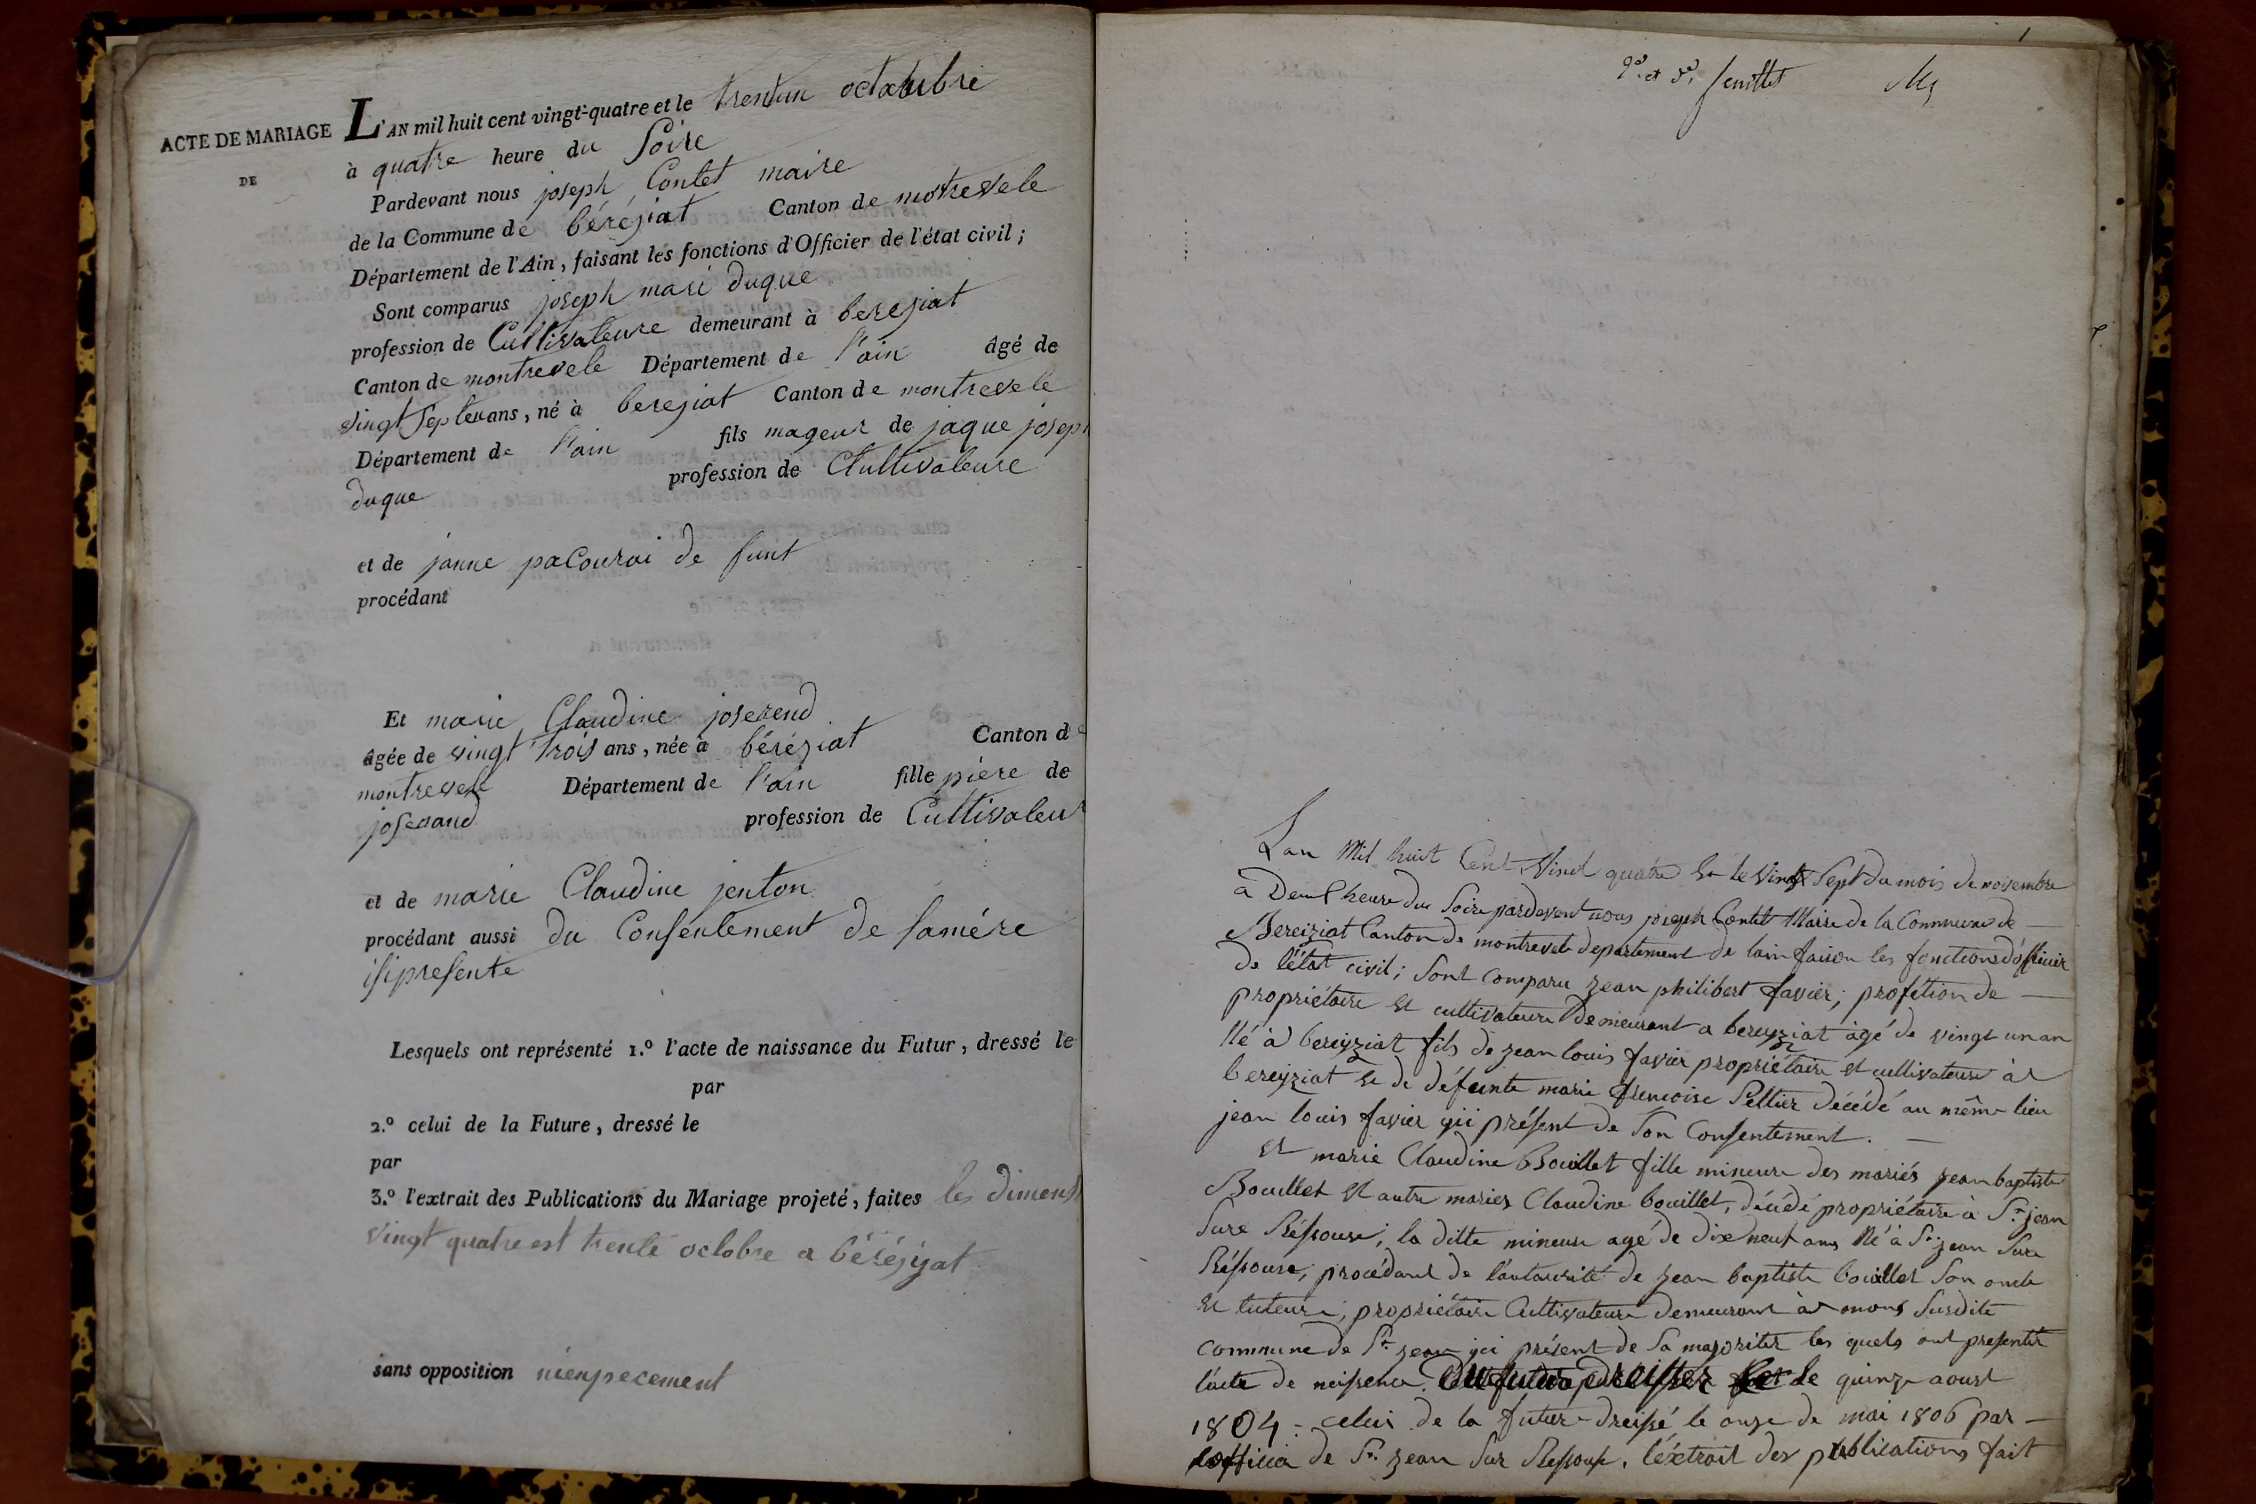 ACTE DE MARIAGE
DE
L'AN mil huit cent vingt-quatre et le trentun octobre
à quatre heure du Soire
Pardevant nous joseph Contet maire
de la Commune de béréjiat Canton de montrevele
Département de l'Ain, faisant les fonctions d'Officier de l'état civil;
Sont comparus joseph marie duque
profession de Cultivateure demeurant à berejiat
Canton de montrevele Département de l'ain âgé de
vingt Septe ans, né à berejiat Canton de montrevele
Département de l'ain fils mageur de jaque joseph
duque profession de Cultivateure
et de janne pacourai de funt
procédant
Et marie Claudine joserend
âgée de vingt trois ans, née à béréziat Canton de
montrevele Département de l'ain fille piere de
joserand profession de Cultivateur
et de marie Claudine jenton
procédant aussi du Consentement de samére
isipresente
Lesquels ont représenté 1.º l'acte de naissance du Futur, dressé le
par
2.º celui de la Future, dressé le
par
3.º l'extrait des Publications du Mariage projeté, faites les dimens
vingt quatre est trente octobre a béréjyat
sans opposition nienpecement
1
2.e et 3.e feuillet
Lan Mil huit Cent Vinct quatre Et le vingt Sept du mois de novembre
à Deux heure du Soire pardevent nous joseph Contet Maire de la Commune de
Bereiziat Canton de montrevele departement de lain faison les fonctions d'officier
de l'état civil; Sont comparu zean philibert favier; profétion de
propriétaire Et cultivateure Demeurant a bereyziat àgé de vingt un an
Né à bereyziat fils de zean louis favier propriétaire et cultivateure à
bereyziat Et de défeunte marie frencoise Pellier décédé au même lieu
jean louis favier yci présent de Son Consentement.
Et marie Claudine Bouillet fille mineure des mariés zean baptiste
Bouillet Et autre maries Claudine bouillet, décédé propriétaire à St jean
Sure Réssouse; la ditte mineure agé de dix neuf ans Né à St zean Sure
Réssouse; procédant de l'autaurité de zean baptiste bouillet Son oncle
Et tuteure; propriétaire Cultivateure demeurant à monς Susdite
commune de St zean yci présent de Sa majoriter les quels ont presenter
l'acte de neissence Du futur Dreisser le quinze aoust
1804 - celui de la future dreissé le onze de mai 1806 par
lofficier de St zean Sur Ressouse. l'éxtrait des publications fait